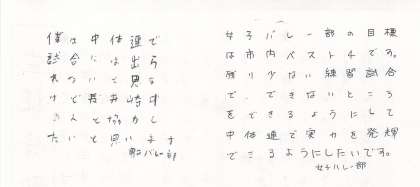 僕は中体連で
試合には出ら
れないと思な
けど長井崎中
さんと協力し
たいと思います
男子バレー部
女子バレー部の目標
は市内ベスト4です。
残り少ない練習試合
で、できないところ
をできるようにして
中体連で実力を発揮
できるようにしたいです。
女子バレー部